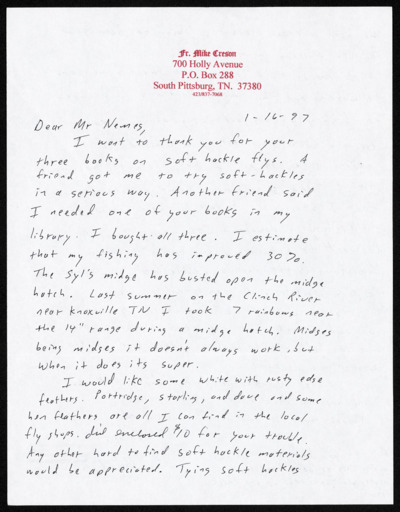 Fr. Mike Creson
700 Holly Avenue
P.O. Box 288
South Pittsburg, TN. 37380
423/837-7068
1-16-97
Dear Mr Nemes,
I want to thank you for your
three books on soft hackle flys. A
friend got me to try soft-hackles
in a serious way. Another friend said
I needed one of your books in my
library. I bought all three. I estimate
that my fishing has improved 30%.
The Syl's midge has busted open the midge
hatch. Last summer on the Clinch River
near Knoxville TN I took 7 rainbows near
the 14" range during a midge hatch. Midges
being midges it doesn't always work, but
when it does its super.
I would like some white with rusty edge
feathers. Partridge, starling, and dove and some
hen feathers are all I can find in the local
fly shops. enclosed $10 for your trouble.
Any other hard to find soft hackle materials
would be appreciated. Tying soft hackles